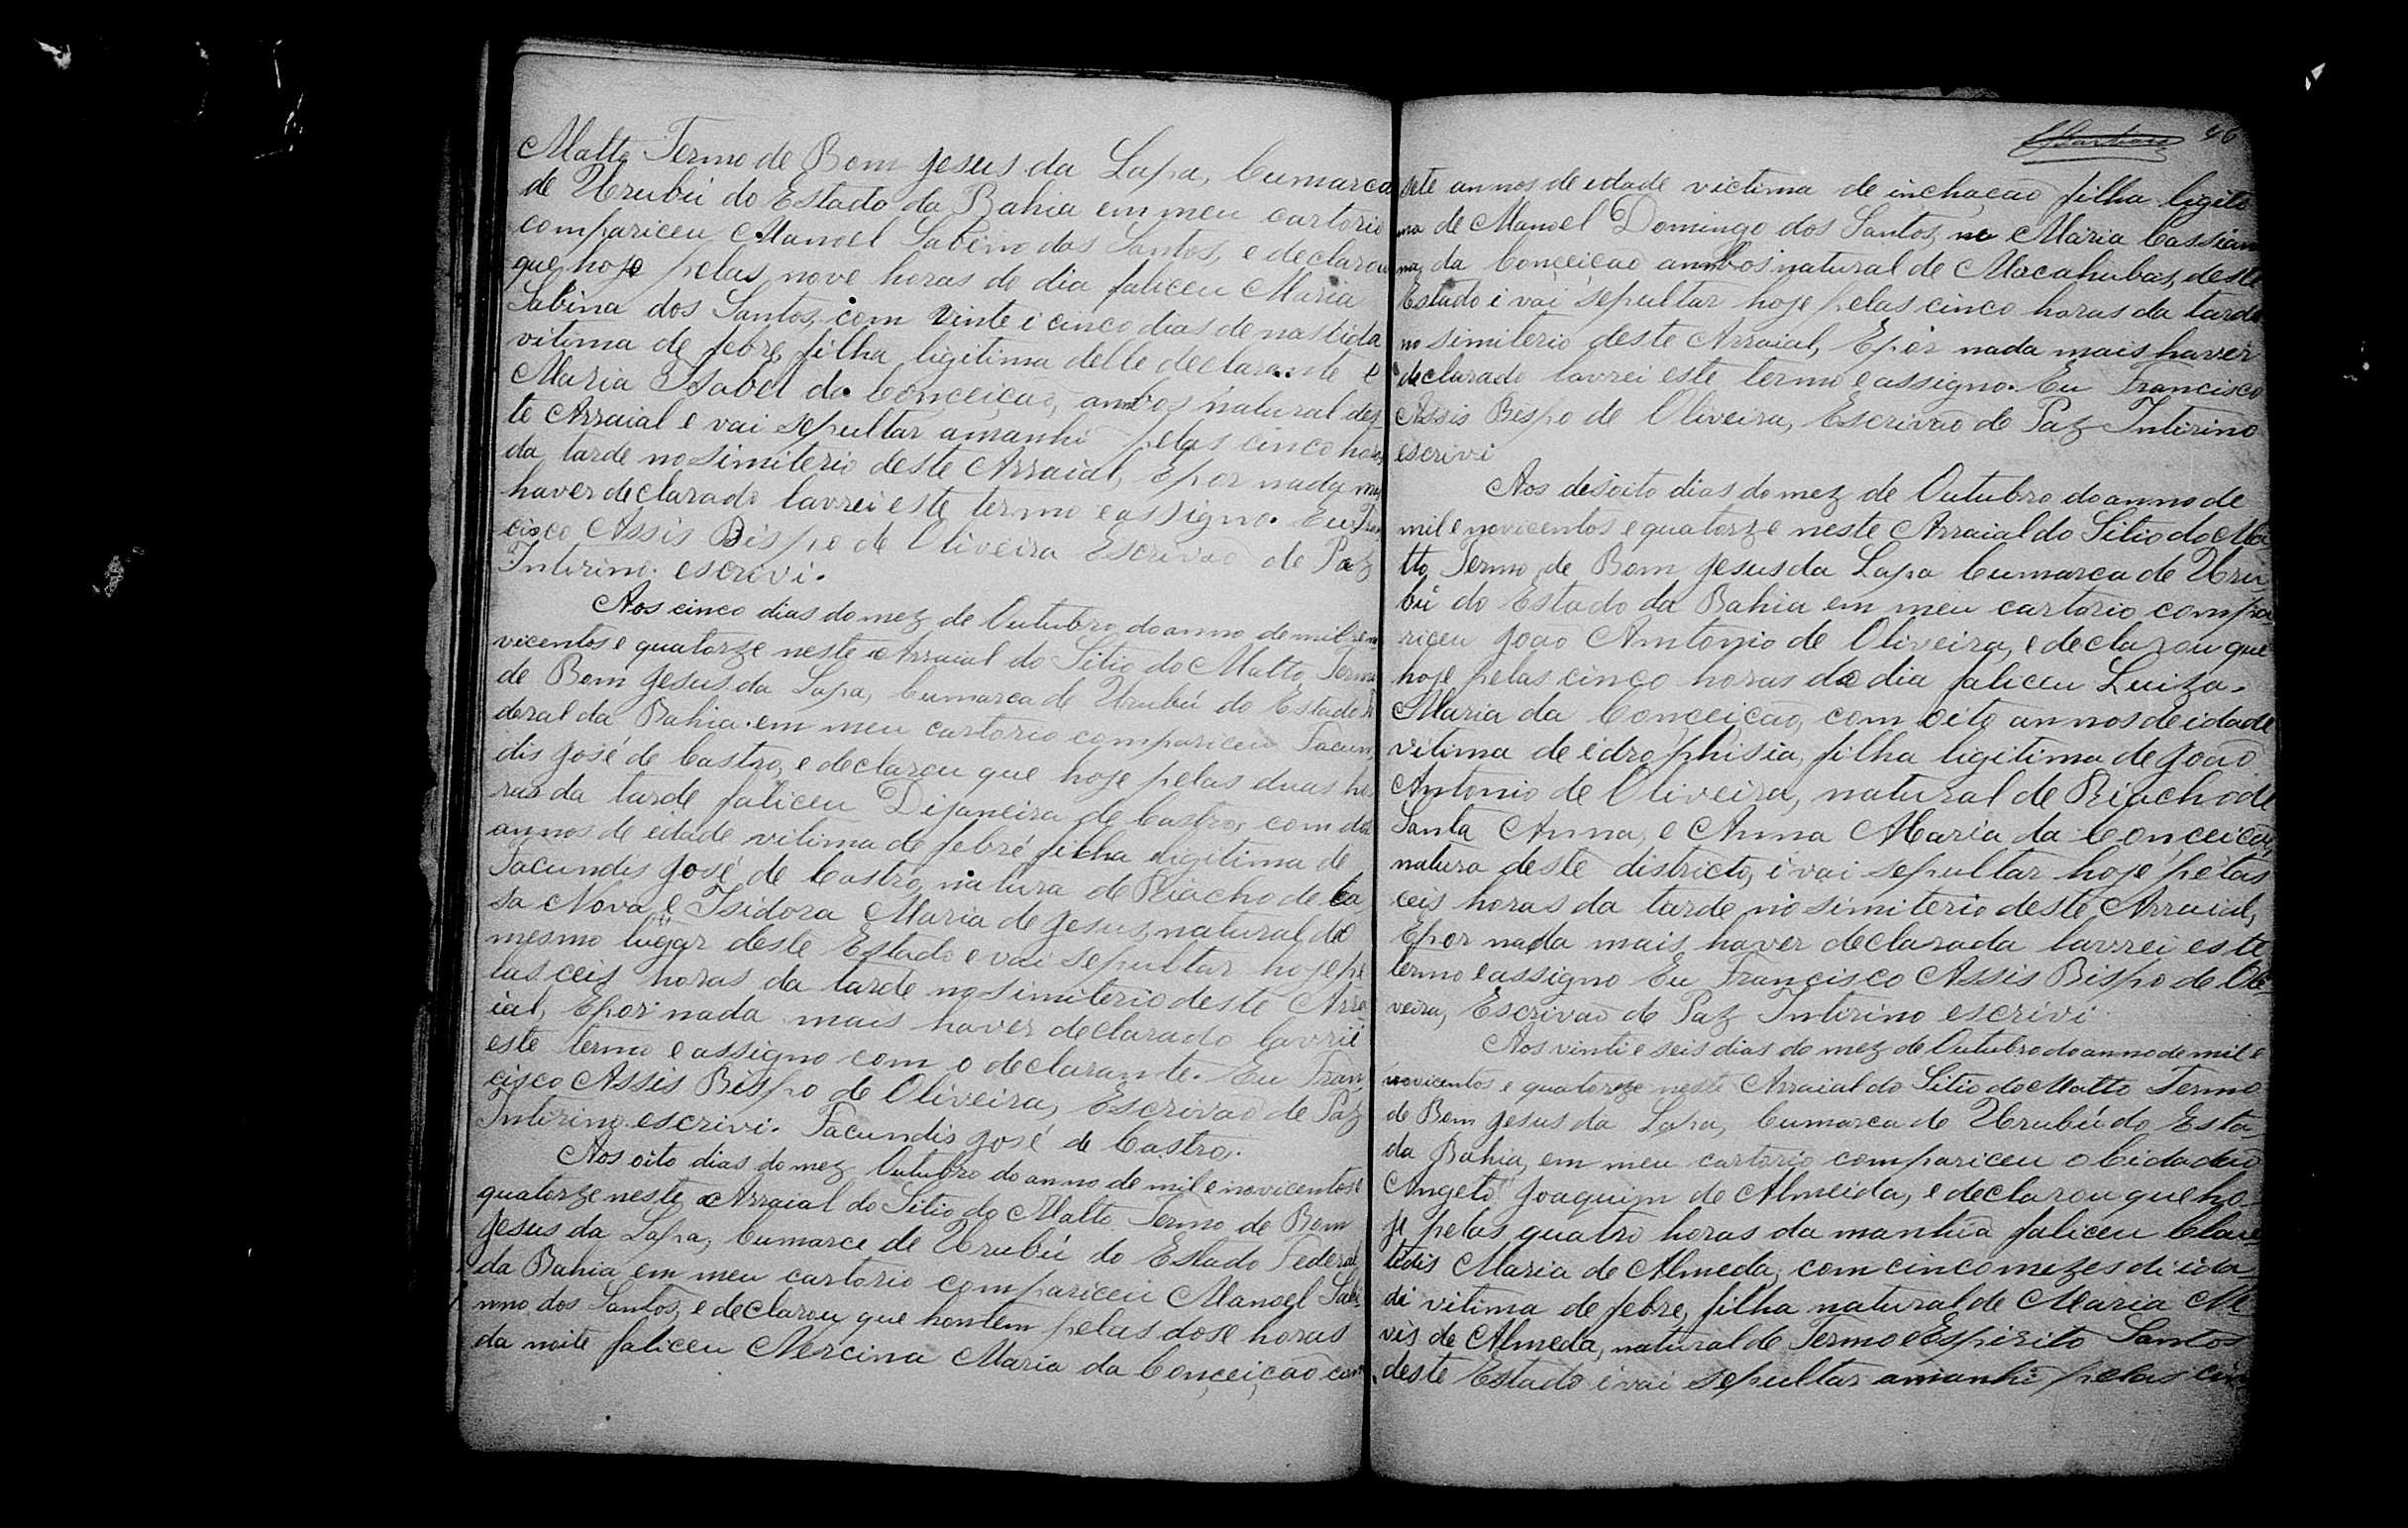 Matto Termo de Bom Jesus da Lapa, Cumarca
de Urubú do Estado da Bahia em meu cartorio
compariceu Manoel Sabino dos Santos, e declarou
que hoje pelas nove horas do dia faliceu Maria
Sabina dos Santos, com vinte i cinco dias de nascida
vitima de febre, filha ligitima delle declarante e
Maria Isabel da Conceição, ambos natural des
te Arraial e vai sepultar amanhi pelas cinco horas
da tarde no simiterio deste Arraial, E por nada mais
haver declarado lavrei este termo e assigno. Eu Fran
cisco Assis Bispo de Oliveira Escrivão de Paz
Intirino escrivi.
Aos cinco dias do mez de Outubro do anno de mil e no
vicentos e quatorze neste Arraial do Sitio do Matto Termo
de Bom Jesus da Lapa, Cumarca de Urubú do Estado Fe
deral da Bahia em meu cartorio compariceu Facun
dis José de Castro, e declarou que hoje pelas duas ho
ras da tarde faliceu Dijaneira de Castro, com dois
annos de idade vitima de febre filha ligitima de
Facundis José de Castro, natura de Riacho de Ca
sa Nova, e Isidora Maria de Jesus, natural do
mesmo lugar deste Estado e vai sepultar hoje pe
las ceis horas da tarde no simiterio deste Arra
ial, E por nada mais haver declarado lavrei
este termo e assigno com o declarante. Eu Fran
cisco Assis Bispo de Oliveira, Escrivão de Paz
Intirino escrivi. Facundis José de Castro.
Aos oito dias do mez Outubro do anno de mil e novicentos e
quatorze neste Arraial do Sitio do Matto Termo de Bom
Jesus da Lapa, Cumarca de Urubú do Estado Federal
da Bahia em meu cartorio compariceu Manoel Sabi
nno dos Santos, e declarou que hontem pelas dose horas
da noite faliceu Nercina Maria da Conceição com
46
sete annos de idade victima de inchação filha ligiti
ma de Manoel Domingo dos Santos, e Maria Cassian
na, da Conceição ambos natural de Macahubas, deste
Estado i vai sepultar hoje pelas cinco horas da tarde
no simiterio deste Arraial, E por nada mais haver
declarado lavrei este termo e assigno. Eu Francisco
Assis Bispo de Oliveira, Escrivão de Paz Intirino
escrivi
Aos desoito dias do mez de Outubro do anno de
mil e novicentos e quatorze neste Arraial do Sitio do Ma
tto, Termo de Bom Jesus da Lapa Cumarca de Uru
bú do Estado da Bahia em meu cartorio compa
riceu João Amtonio de Oliveira, e declarou que
hoje pelas cinco horas do dia faliceu Luiza
Maria da Conceição, com oito annos de idade
vitima de idrophisia, filha ligitima de João
Antonio de Oliveira, natural de Riacho de
Santa Anna, e Anna Maria da Conceição,
natura deste districto, i vai sepultar hoje pelas
ceis horas da tarde no simiterio deste Arraial,
E por nada mais haver declarada lavrei este
termo e assigno Eu Francisco Assis Bispo de Oli-
veira, Escrivão de Paz Intirino escrivi
Aos vinti e seis dias do mez de Outubro do anno de mil e
novicentos e quatorze neste Arraial do Sitio do Matto Termo
de Bom Jesus da Lapa, Cumarca de Urubú do Esta-
da Bahia, em meu cartorio compariceu o Cidadão
Angelo Joaquim de Almeida, e declarou que ho-
je pelas quatro horas da manhia faliceu
Maria de Almeda, com cinco mezes di ida-
di vitima de febre, filha natural de Maria
de Almeda, natural de Termo Espirito Santos
deste Estado i vai sepultar amanhi pelas cin